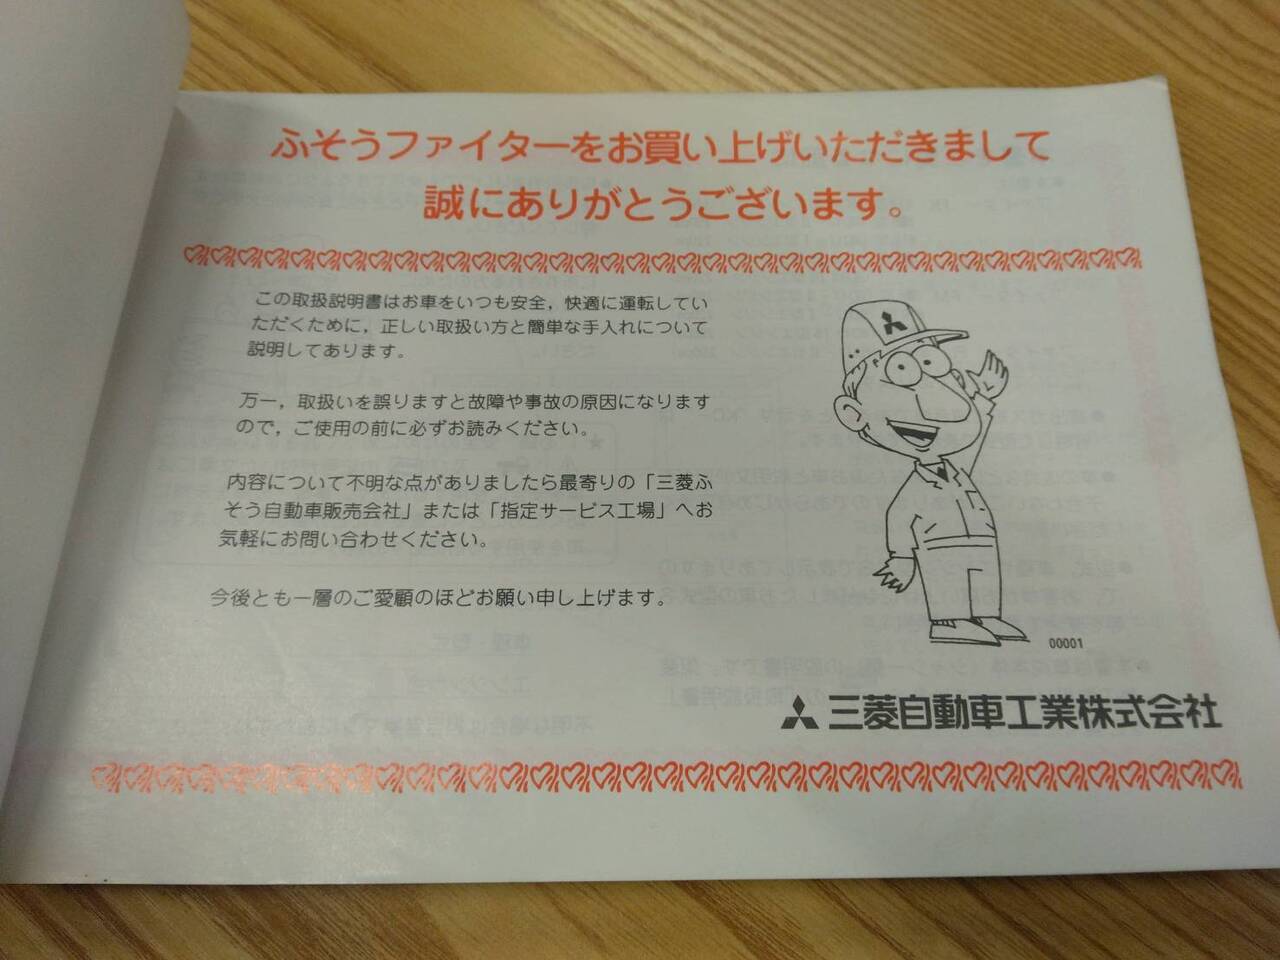 ふそうファイターをお買い上げいただきまして
誠にありがとうございます。
この取扱説明書はお車をいつも安全，快適に運転してい
ただくために，正しい取扱い方と簡単な手入れについて
説明してあります。
万一，取扱いを誤りますと故障や事故の原因になります
ので，ご使用の前に必ずお読みください。
内容について不明な点がありましたら最寄りの「三菱ふ
そう自動車販売会社」または「指定サービス工場」へお
気軽にお問い合わせください。
今後とも一層のご愛顧のほどお願い申し上げます。
00001
三菱自動車工業株式会社